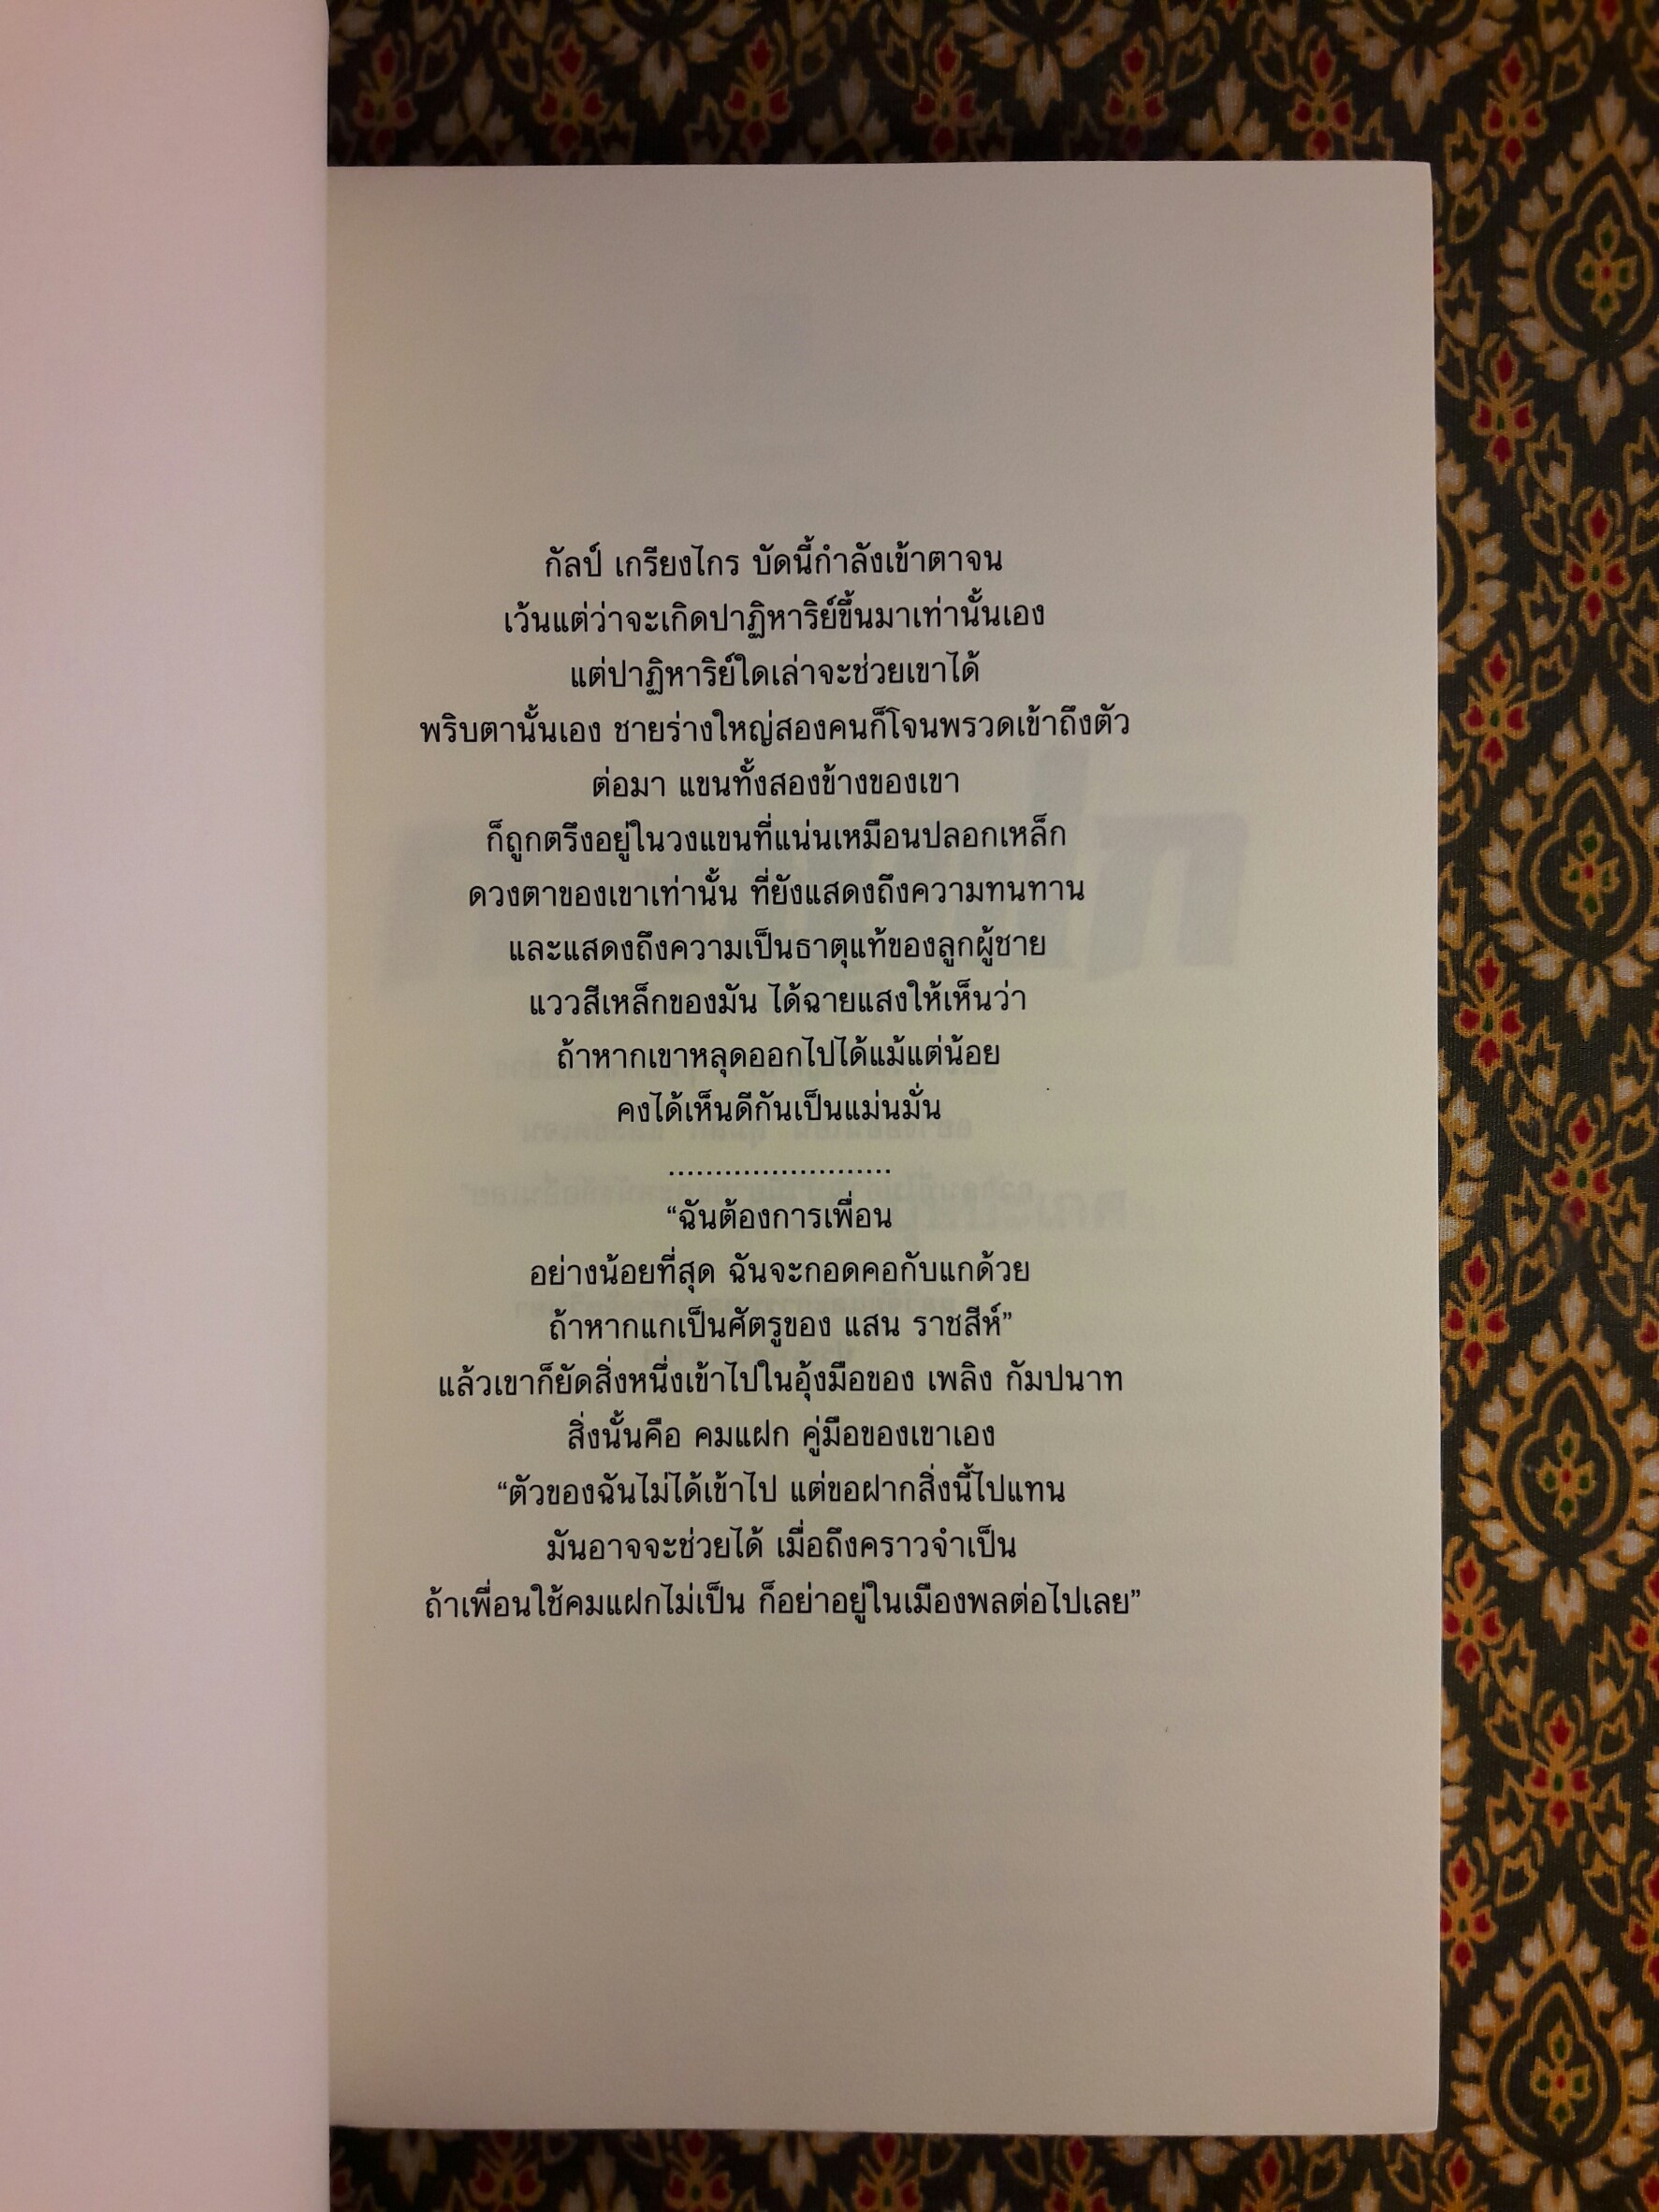 กัลป์ เกรียงไกร บัดนี้กำลังเข้าตาจน
เว้นแต่ว่าจะเกิดปาฏิหาริย์ขึ้นมาเท่านั้นเอง
แต่ปาฏิหาริย์ใดเล่าจะช่วยเขาได้
พริบตานั้นเอง ชายร่างใหญ่สองคนก็โจนพรวดเข้าถึงตัว
ต่อมา แขนทั้งสองข้างของเขา
ก็ถูกตรึงอยู่ในวงแขนที่แน่นเหมือนปลอกเหล็ก
ดวงตาของเขาเท่านั้น ที่ยังแสดงถึงความทนทาน
และแสดงถึงความเป็นธาตุแท้ของลูกผู้ชาย
แววสีเหล็กของมัน ได้ฉายแสงให้เห็นว่า
ถ้าหากเขาหลุดออกไปได้แม้แต่น้อย
คงได้เห็นดีกันเป็นแม่นมั่น
........................
“ฉันต้องการเพื่อน
อย่างน้อยที่สุด ฉันจะกอดคอกับแกด้วย
ถ้าหากแกเป็นศัตรูของ แสน ราชสีห์”
แล้วเขาก็ยัดสิ่งหนึ่งเข้าไปในอุ้งมือของ เพลิง กัมปนาท
สิ่งนั้นคือ คมแฝก คู่มือของเขาเอง
“ตัวของฉันไม่ได้เข้าไป แต่ขอฝากสิ่งนี้ไปแทน
มันอาจจะช่วยได้ เมื่อถึงคราวจำเป็น
ถ้าเพื่อนใช้คมแฝกไม่เป็น ก็อย่าอยู่ในเมืองพลต่อไปเลย”